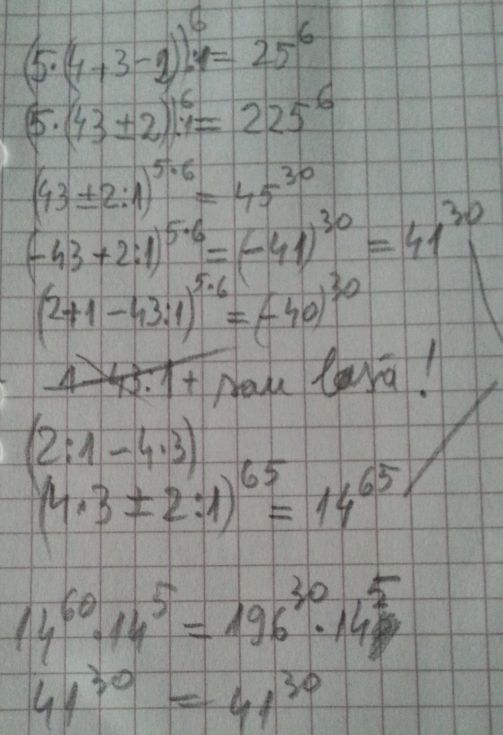 (5·(4+3-2))⁶:1 = 25⁶
(5·(43±2))⁶:1 = 225⁶
(43±2:1)⁵·⁶ = 45³⁰
(-43+2:1)⁵·⁶ = (-41)³⁰ = 41³⁰
(2+1-43:1)⁵·⁶ = (-40)³⁰
sau lasă!
(2:1-4·3)
(4·3±2:1)⁶⁵ = 14⁶⁵
14⁶⁰·14⁵ = 196³⁰·14⁵
41³⁰ = 41³⁰